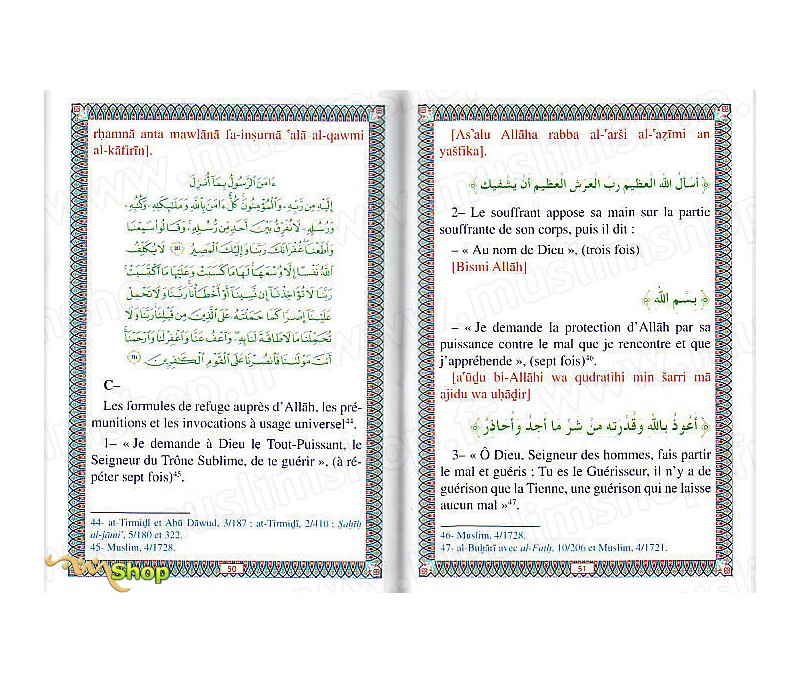 rḥamnā anta mawlānā fa-inṣurnā ʿalā al-qawmi
al-kāfirīn].
ءَامَنَ ٱلرَّسُولُ بِمَآ أُنزِلَ
إِلَيْهِ مِن رَّبِّهِۦ وَٱلْمُؤْمِنُونَ كُلٌّ ءَامَنَ بِٱللَّهِ وَمَلَٰٓئِكَتِهِۦ وَكُتُبِهِۦ
وَرُسُلِهِۦ لَا نُفَرِّقُ بَيْنَ أَحَدٍ مِّن رُّسُلِهِۦ وَقَالُوا۟ سَمِعْنَا
وَأَطَعْنَا غُفْرَانَكَ رَبَّنَا وَإِلَيْكَ ٱلْمَصِيرُ ٢٨٥ لَا يُكَلِّفُ
ٱللَّهُ نَفْسًا إِلَّا وُسْعَهَا لَهَا مَا كَسَبَتْ وَعَلَيْهَا مَا ٱكْتَسَبَتْ
رَبَّنَا لَا تُؤَاخِذْنَآ إِن نَّسِينَآ أَوْ أَخْطَأْنَا رَبَّنَا وَلَا تَحْمِلْ
عَلَيْنَآ إِصْرًا كَمَا حَمَلْتَهُۥ عَلَى ٱلَّذِينَ مِن قَبْلِنَا رَبَّنَا وَلَا
تُحَمِّلْنَا مَا لَا طَاقَةَ لَنَا بِهِۦ وَٱعْفُ عَنَّا وَٱغْفِرْ لَنَا وَٱرْحَمْنَآ
أَنتَ مَوْلَىٰنَا فَٱنصُرْنَا عَلَى ٱلْقَوْمِ ٱلْكَٰفِرِينَ ٢٨٦
C–
Les formules de refuge auprès d’Allāh, les pré-
munitions et les invocations à usage universel44.
1– « Je demande à Dieu le Tout-Puissant, le
Seigneur du Trône Sublime, de te guérir », (à ré-
péter sept fois)45.
44- at-Tirmiḏī et Abū Dāwud, 3/187 ; at-Tirmiḏī, 2/410 ; Ṣaḥīḥ
al-jāmiʿ, 5/180 et 322.
45- Muslim, 4/1728.
50
Shop
[As’alu Allāha rabba al-ʿarši al-ʿaẓīmi an
yašfika].
﴿ أسْألُ الله العَظِيم رَبَّ العَرْش العَظِيم أنْ يَشْفِيكَ ﴾
2– Le souffrant appose sa main sur la partie
souffrante de son corps, puis il dit :
– « Au nom de Dieu », (trois fois)
[Bismi Allāh]
﴿ بِسْمِ الله ﴾
– « Je demande la protection d’Allāh par sa
puissance contre le mal que je rencontre et que
j’appréhende », (sept fois)46.
[aʿūḏu bi-Allāhi wa qudratihi min šarri mā
ajidu wa uḥāḏir]
﴿ أعُوذُ باللَّهِ وَقُدْرَتِه مِنْ شَرِّ مَا أجِدُ وَأُحَاذِرُ ﴾
3– « Ô Dieu, Seigneur des hommes, fais partir
le mal et guéris ; Tu es le Guérisseur, il n’y a de
guérison que la Tienne, une guérison qui ne laisse
aucun mal »47.
46- Muslim, 4/1728.
47- al-Buḫārī avec al-Fatḥ, 10/206 et Muslim, 4/1721.
51